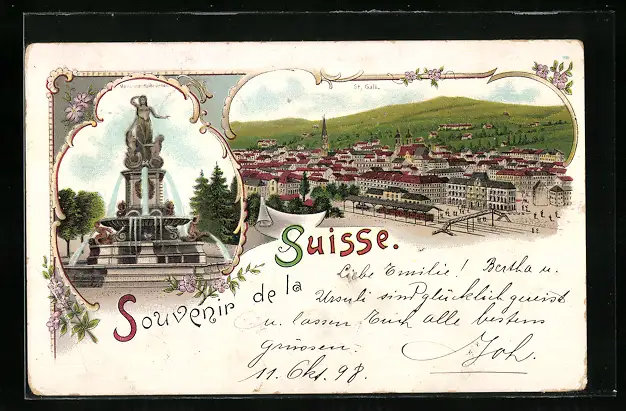 St. Gall.
Souvenir de la Suisse.
Liebe Emilie! Bertha u.
Ursuli sind glücklich gereist
u. lassen Euch alle bestens
grüssen. Joh.
11. Okt. 98.